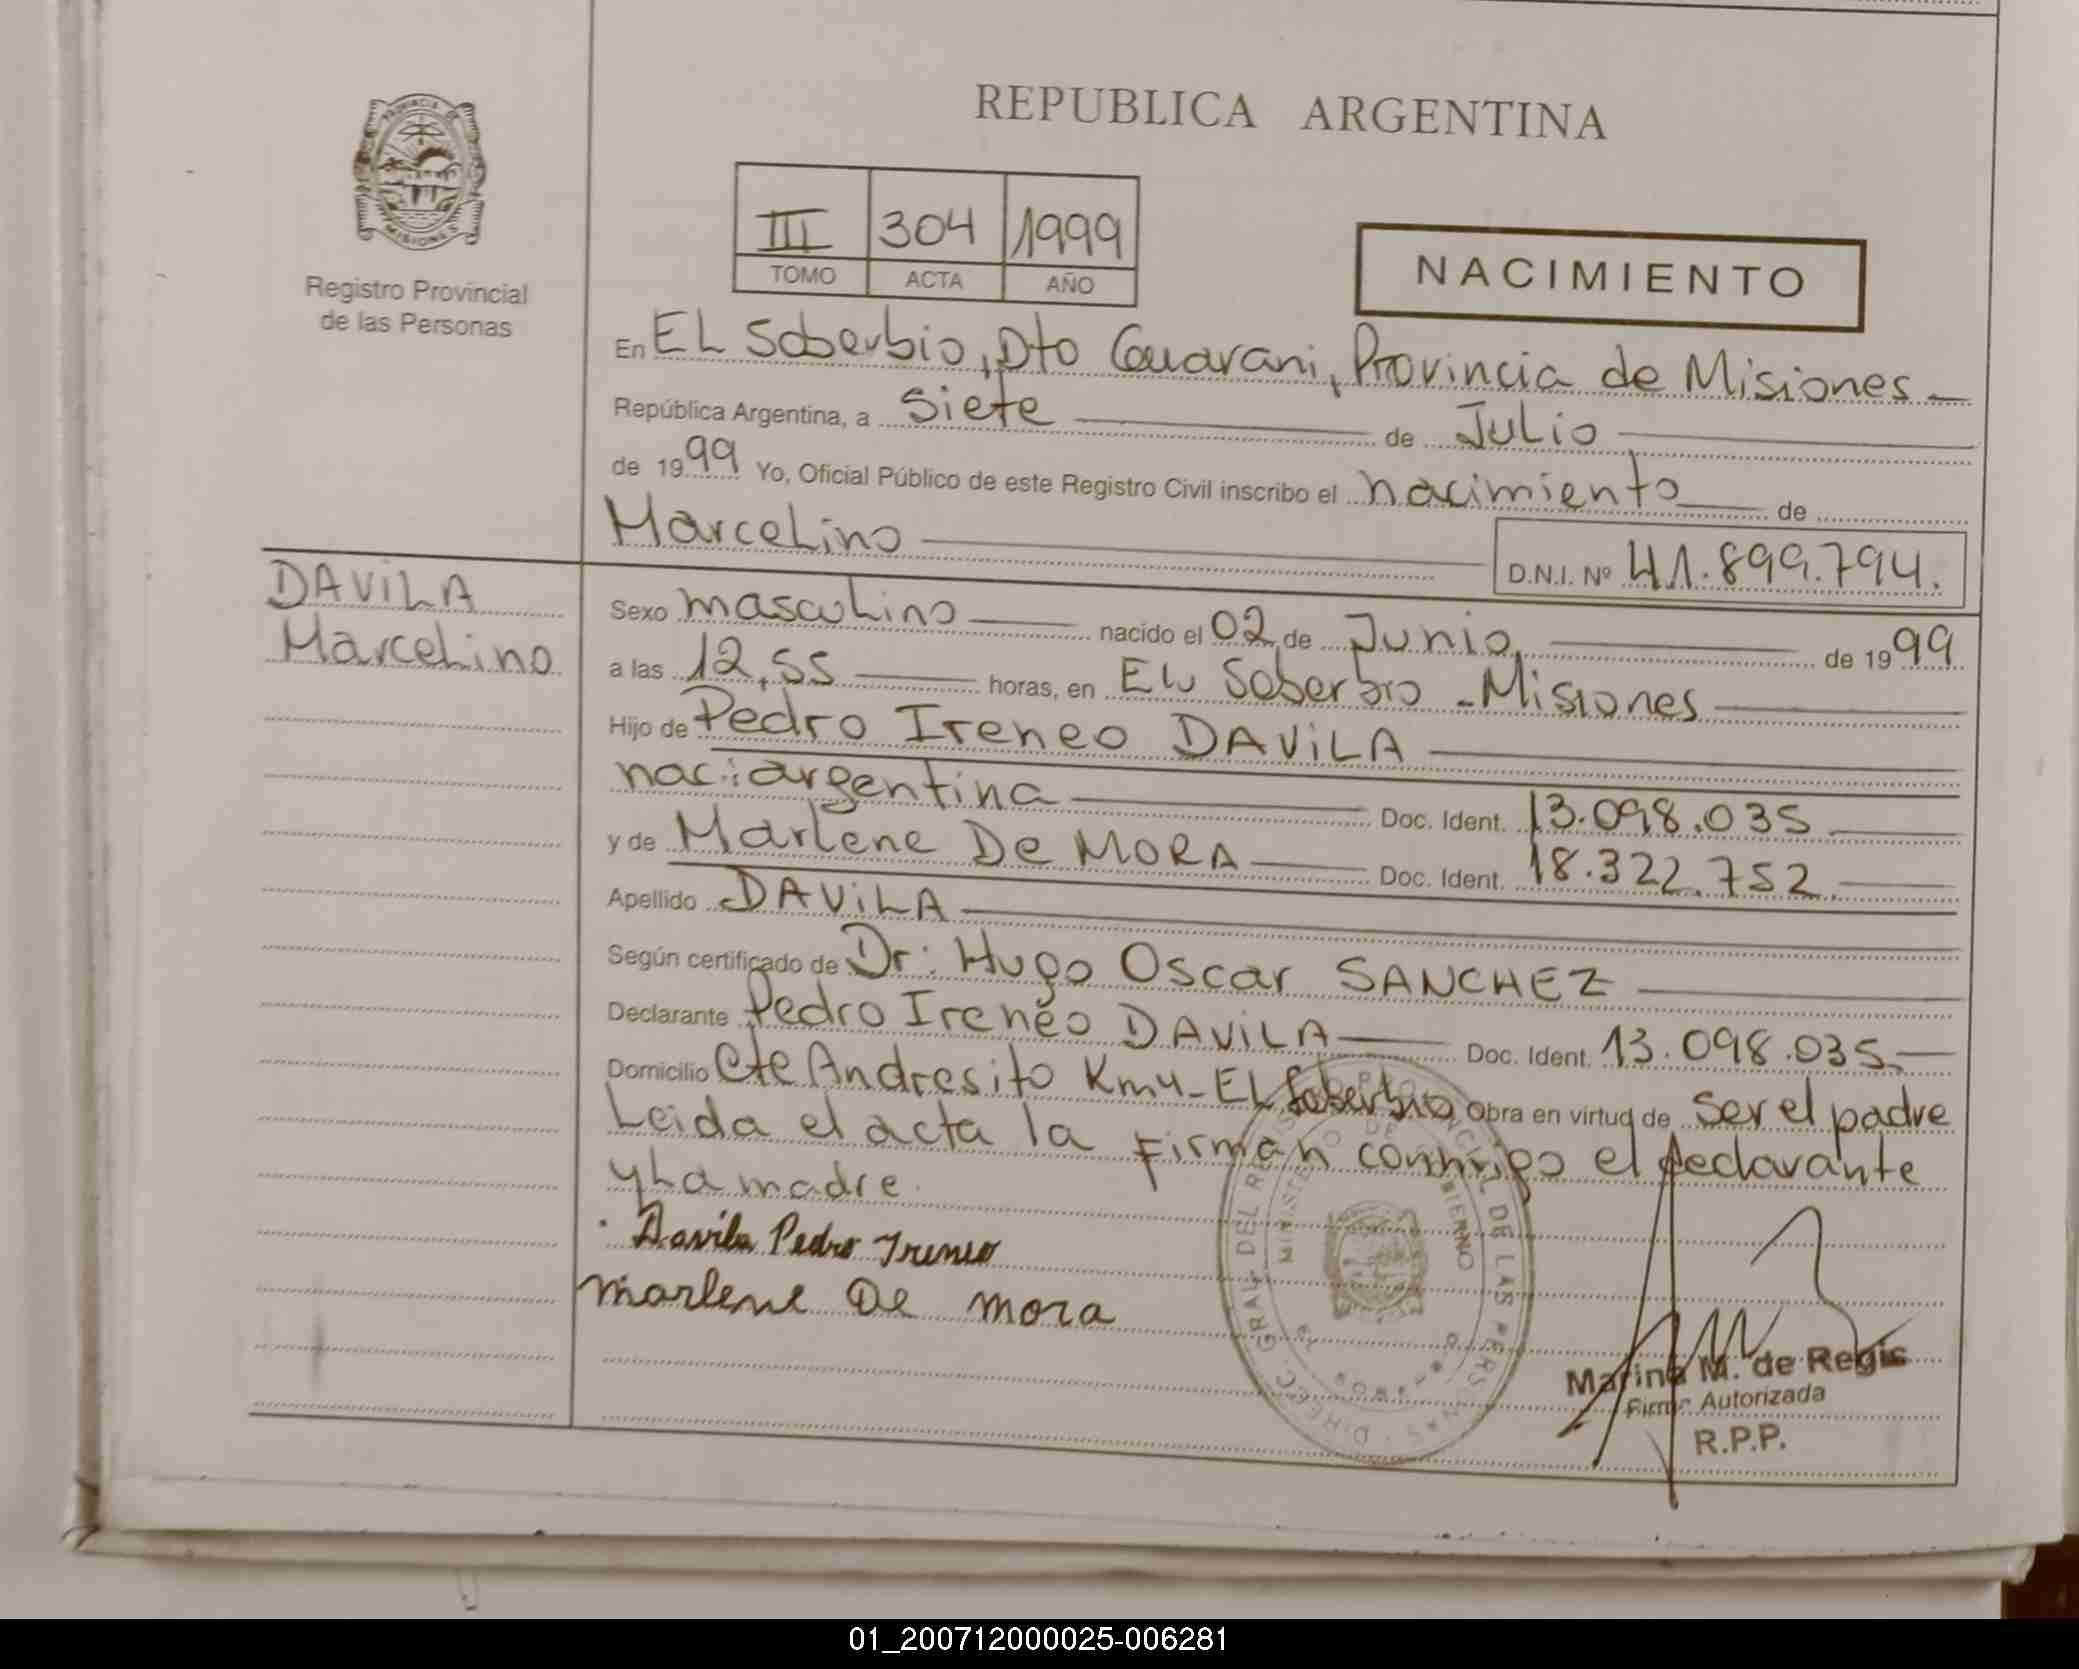 PROVINCIA DE
MISIONES
Registro Provincial
de las Personas
REPUBLICA ARGENTINA
III 304 1999
TOMO ACTA AÑO
NACIMIENTO
En EL Soberbio, Dto Guarani, Provincia de Misiones
República Argentina, a Siete de Julio
de 1999 Yo, Oficial Público de este Registro Civil inscribo el nacimiento de
Marcelino
D.N.I. Nº 41.899.794.
DAViLA
Marcelino
Sexo masculino nacido el 02 de Junio de 1999
a las 12,55 horas, en EL Soberbio - Misiones
Hijo de Pedro Ireneo DAViLA
nac: argentina Doc. Ident. 13.098.035
y de Marlene De MORA Doc. Ident. 18.322.752
Apellido DAViLA
Según certificado de Dr: Hugo Oscar SANCHEZ
Declarante Pedro Ireneo DAViLA Doc. Ident. 13.098.035
Domicilio Cte Andresito Km 4 - EL Soberbio Obra en virtud de ser el padre
Leida el acta la firman conmigo el declarante
y La madre.
Davila Pedro Ireneo
Marlene De Mora
DIRECC. GRAL. DEL REGISTRO PROVINCIAL DE LAS PERSONAS
MINISTERIO DE GOBIERNO
Marina M. de Regis
Firma Autorizada
R.P.P.
01_200712000025-006281